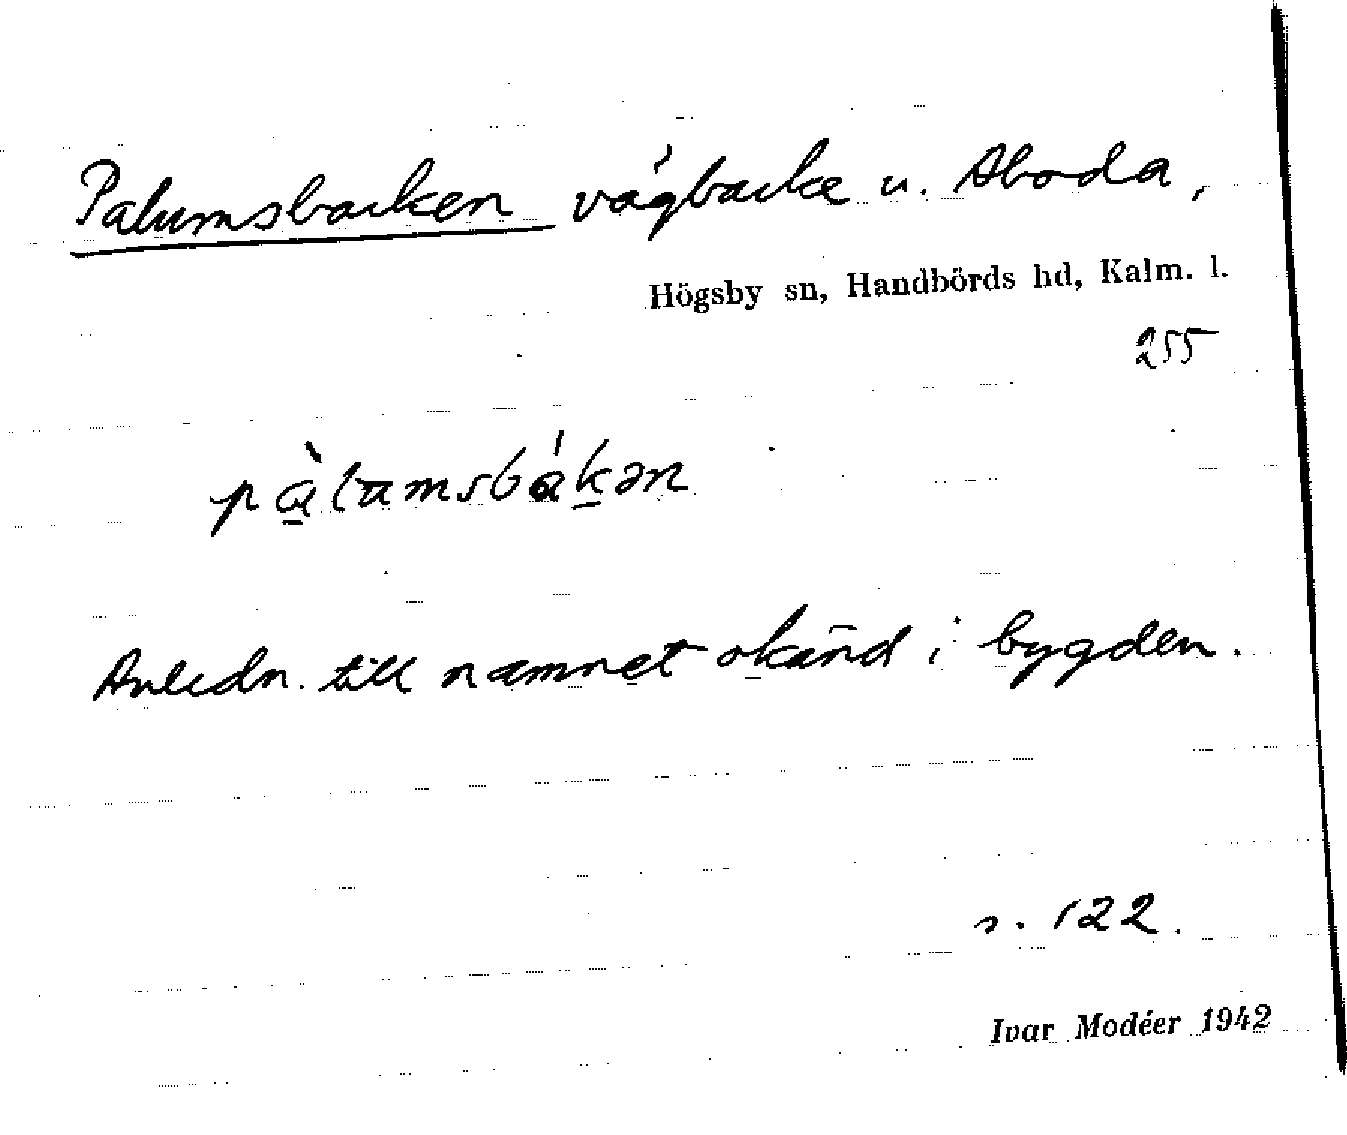 Palumsbacken vägbacke u. Aboda,
Högsby sn, Handbörds hd, Kalm. l.
255
pà̱lumsbák̠ən
Anledn. till namnet okänd i bygden.
s. 122.
Ivar Modéer 1942